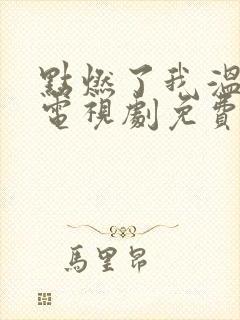 點燃了我溫
電視劇免費
馬里昂